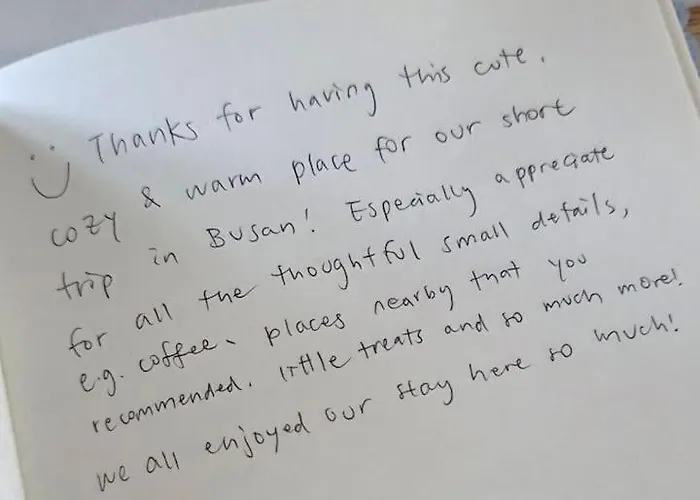 Thanks for having this cute,
cozy & warm place for our short
trip in Busan! Especially appreciate
for all the thoughtful small details,
e.g. coffee、places nearby that you
recommended, little treats and so much more!
we all enjoyed our stay here so much!